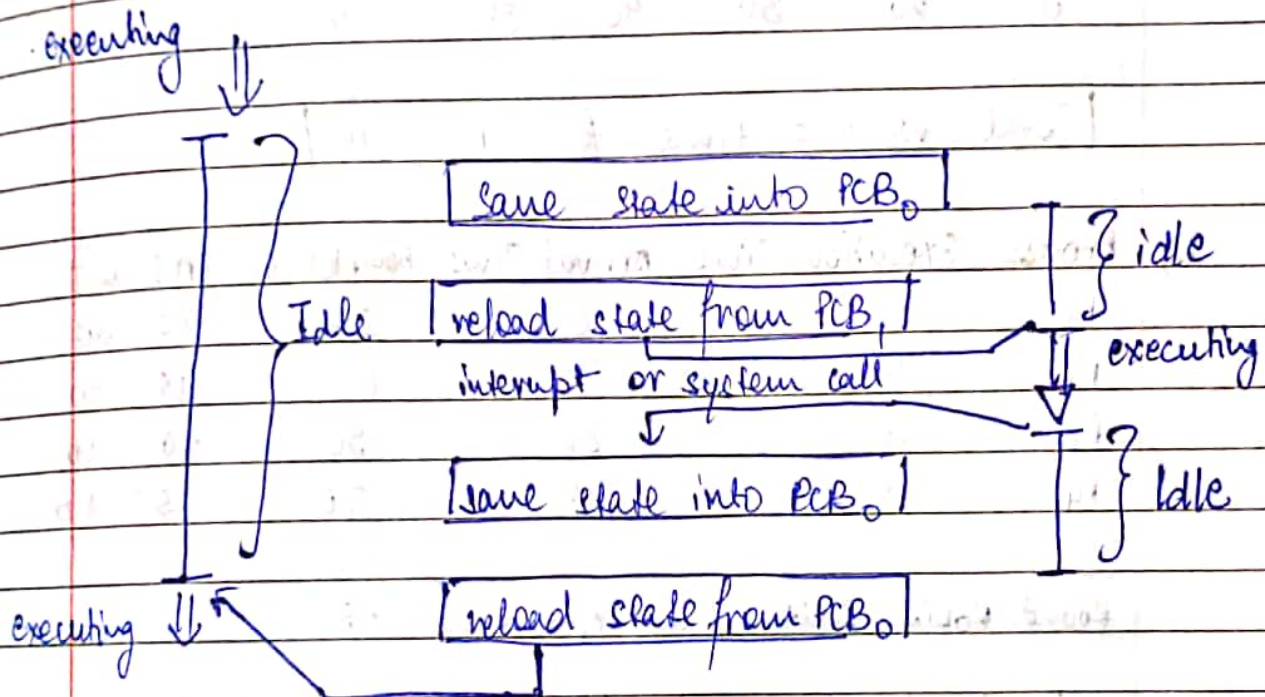 executing
save state into PCB₀
idle
Idle
reload state from PCB₁
executing
interupt or system call
save state into PCB₀
Idle
executing
reload state from PCB₀